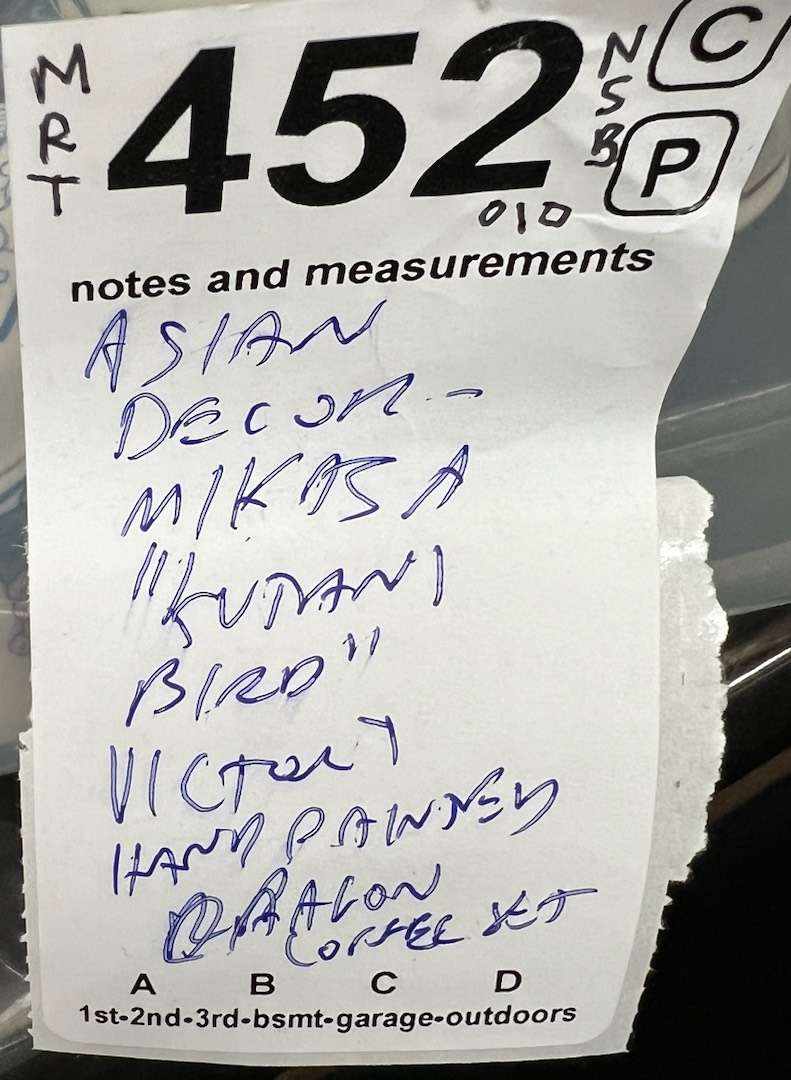 MRT 452 NSB C
P
010
notes and measurements
ASIAN
DECOR -
MIKASA
"KUTANI
BIRD"
VICTORY
HAND PAINTED
DRAGON
COFFEE SET
A B C D
1st-2nd-3rd-bsmt-garage-outdoors